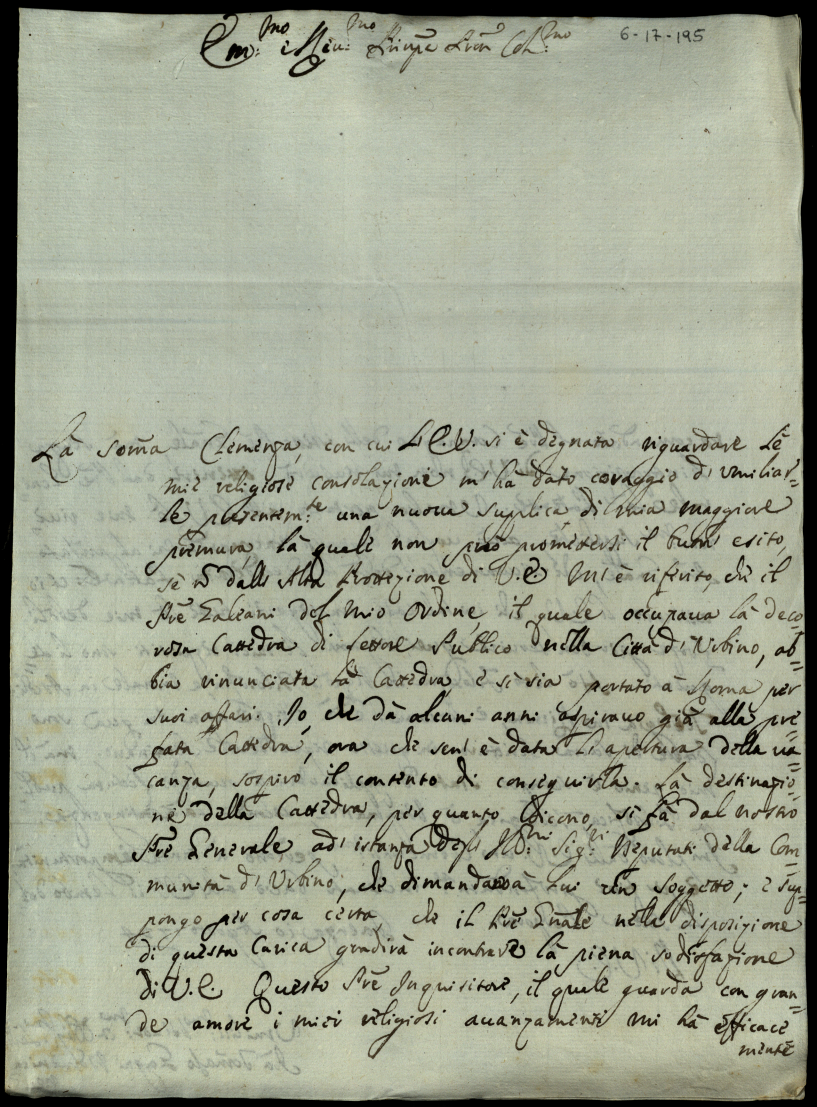 Em:mo i Rev:mo Prinpe Pron Col:mo
6-17-195
La som̃a Clemenza, con cui L'E.V. si è degnata riguardare le
mie religiose consolazione m'ha dato coraggio d'umiliar=
le presentem:te una nuova supplica di mia maggiore
premura, la quale non può promettersi il buon' esito,
se nõ dalla Alta Protezione di V.E. M'è riferito, che il
Prẽ Galeani del mio Ordine, il quale occupava la deco=
rosa Cattedra di Lettore Publico nella Città d'Urbino, ab=
bia rinunciata la Cattedra, e si sia portato à Roma per
suoi affari. Io, che dà alcuni anni aspiravo già alla pre=
fata Cattedra, ora che sen'è data l'apertura della va=
canza, sospiro il contento di conseguirla. La destinazio=
ne della Cattedra, per quanto dicono, si fà dal nostro
Prẽ Generale ad'istanza degli Ill:mi Sig:ri Deputati della Com=
munità d'Urbino, che dimandarà lui un soggetto; e sup=
pongo per cosa certa, che il Prẽ Gñale nella disposizione
di questa Carica gradirà incontrare la piena sodisfazione
di V.E. Questo Prẽ Inquisitore, il quale guarda con gran=
de amore i miei religiosi avanzamenti mi hà efficace
mente